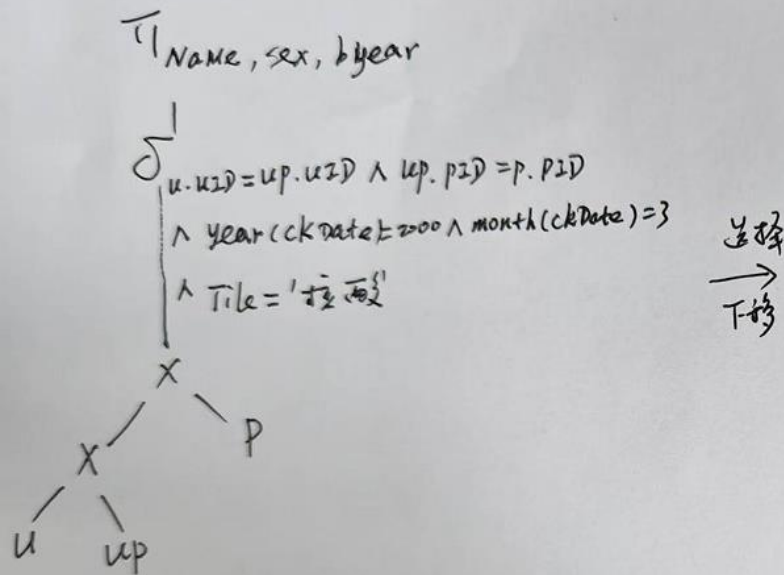 π Name, sex, byear
δ u.uID = up.uID ∧ up.pID = p.PID
∧ year(ckDate)=2000 ∧ month(ckDate)=3
∧ Tile='核酸'
选择
→
下移
X
X
P
u
up